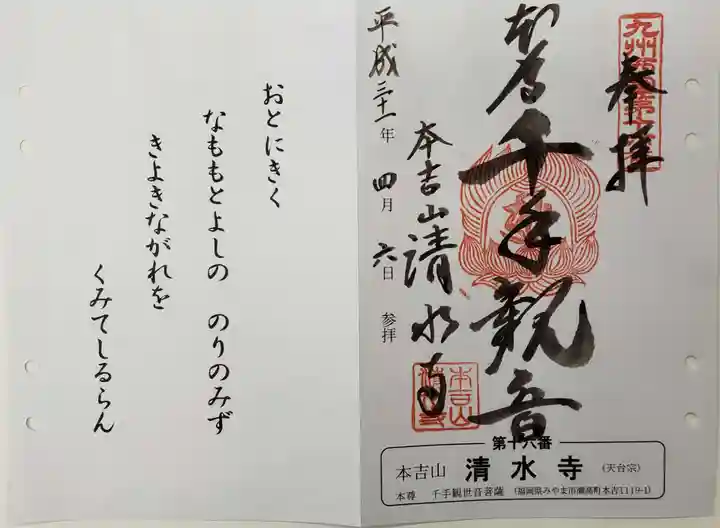 奉拝
九州西国第十六番
本尊千手観音
本吉山清水寺
平成三十一年四月六日参拝
本吉山
清水寺
第十六番
本吉山 清水寺 (天台宗)
本尊 千手観世音菩薩 (福岡県みやま市瀬高町本吉1119-1)
おとにきく
なももとよしの のりのみず
きよきながれを
くみてしるらん